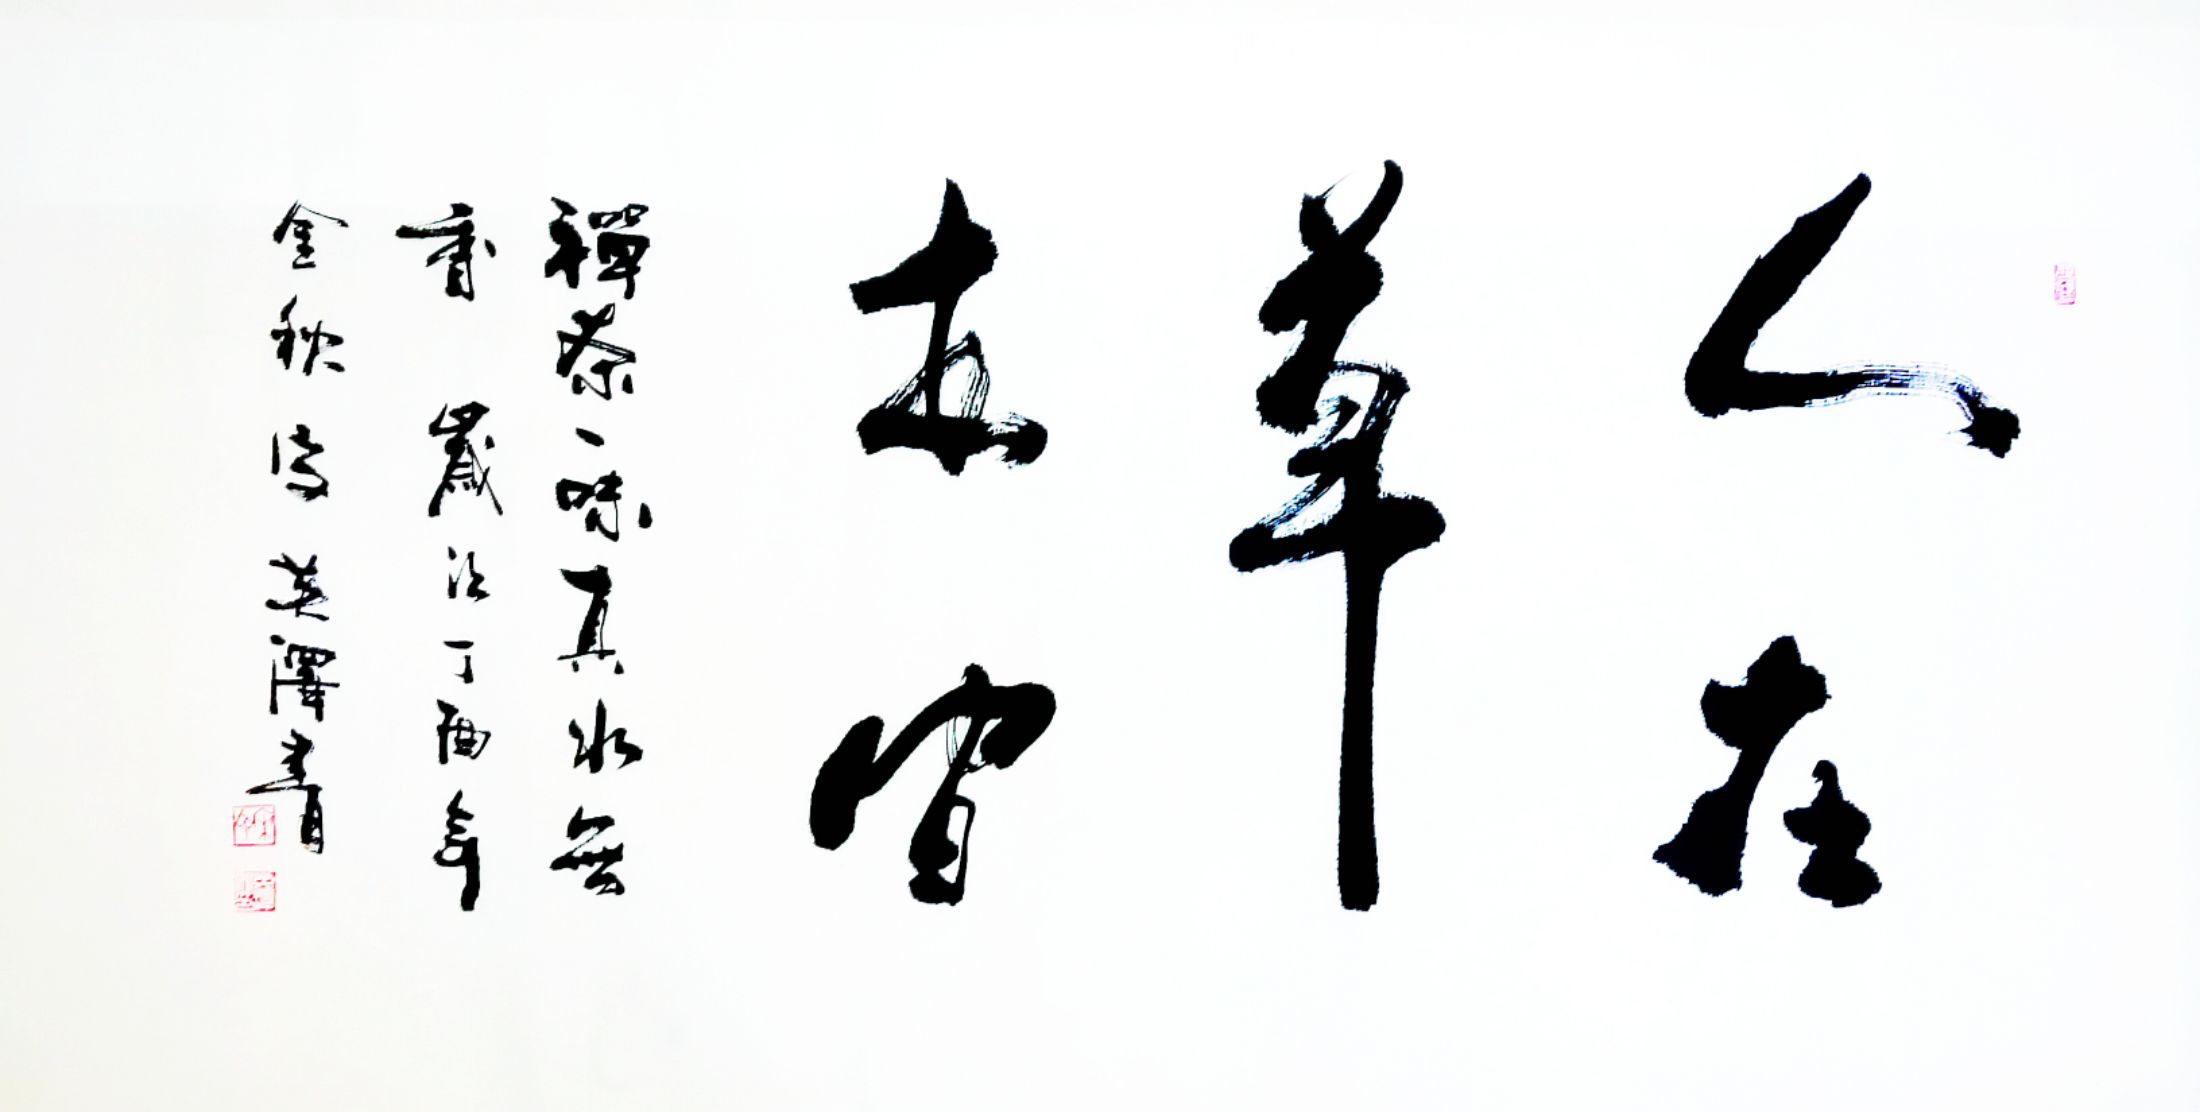 人在
草
木間
禪茶一味真水無
香 歲次丁酉年
金秋 英澤書